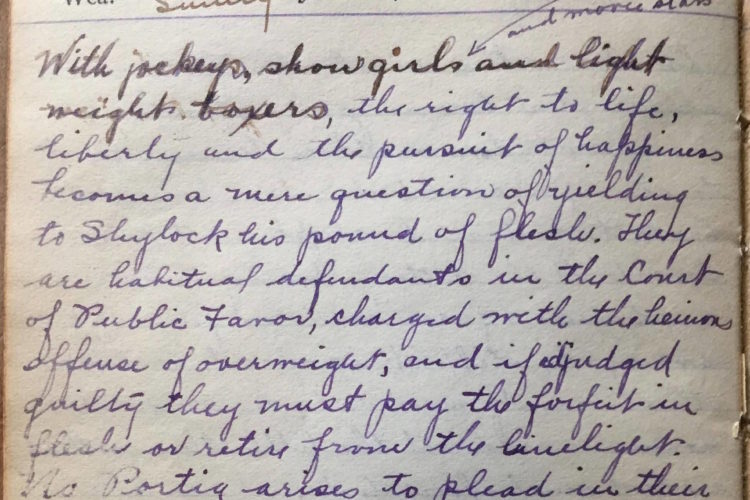 Wed. Sunday
and movie stars
With jockeys, show girls and light
weight boxers, the right to life,
liberty and the pursuit of happiness
becomes a mere question of yielding
to Shylock his pound of flesh. They
are habitual defendants in the Court
of Public Favor, charged with the heinous
offense of overweight, and if adjudged
guilty they must pay the forfeit in
flesh or retire from the limelight.
No Portia arises to plead in their